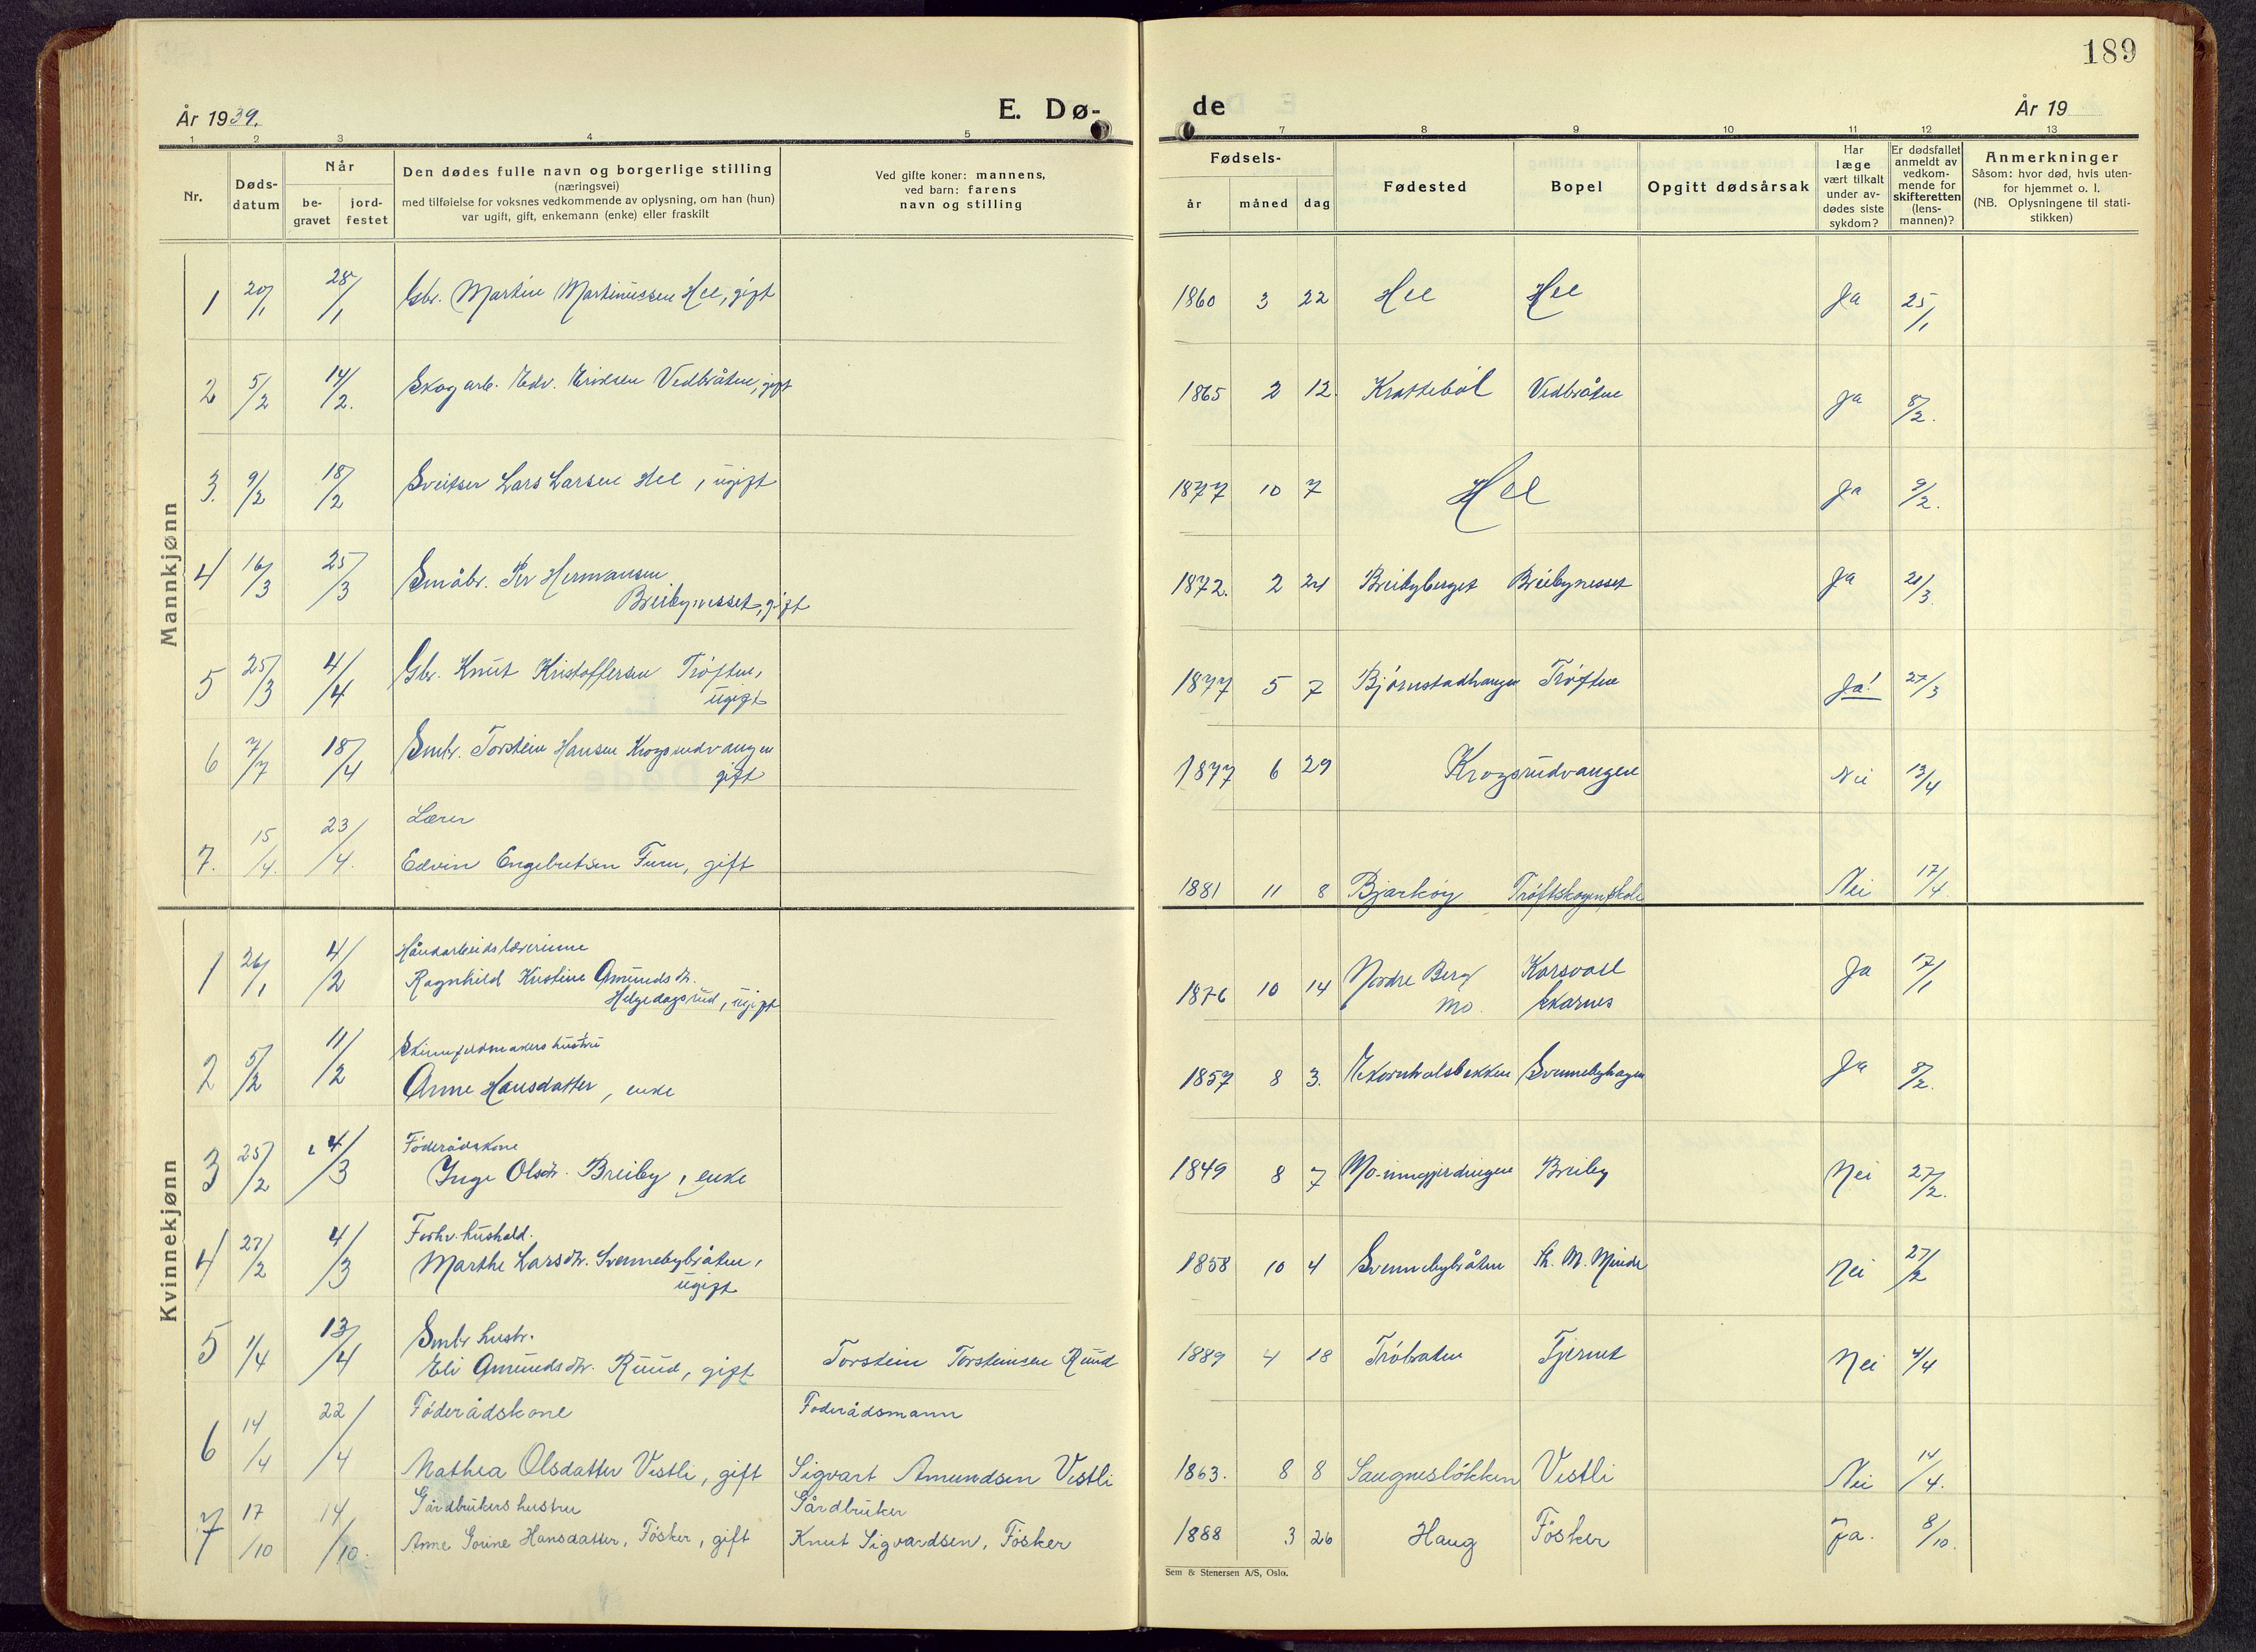 189
År 1939.
E. Dø-
de
År 19
1 2 3 4 5
7 8 9 10 11 12 13
Nr.
Døds-
datum
Når
be-
gravet
jord-
festet
Den dødes fulle navn og borgerlige stilling
(næringsvei)
med tilføielse for voksnes vedkommende av oplysning, om han (hun)
var ugift, gift, enkemann (enke) eller fraskilt
Ved gifte koner: mannens,
ved barn: farens
navn og stilling
Fødsels-
år måned dag
Fødested
Bopel
Opgitt dødsårsak
Har
læge
vært tilkalt
under av-
dødes siste
sykdom?
Er dødsfallet
anmeldt av
vedkom-
mende for
skifteretten
(lens-
mannen)?
Anmerkninger
Såsom: hvor død, hvis uten-
for hjemmet o. l.
(NB. Oplysningene til stati-
stikken)
Mannkjønn
1 20/1 28/1 Gbr. Martin Martinussen Hee, gift 1860 3 22 Hee Hee Ja 25/1
2 5/2 14/2. Skogarb. Edv. Eriksen Vedbråten, gift 1865 2 12. Krattebøl Vedbråten Ja 8/2.
3. 9/2 18/2 Sveitser Lars Larsen Hee, ugift 1877 10 7 Hee Ja 9/2.
4 16/3 25/3 Småbr. Per Hermansen
Breibynesset, gift 1872. 2 24 Breibyberget Breibynesset Ja 21/3.
5 25/3 4/4 Gbr. Knut Kristoffersen Trøften,
ugift 1877 5 7 Bjørnstadhaugen Trøften Ja! 27/3
6 7/7 18/4 Smbr. Torstein Hansen Krogsrudvangen
gift 1877 6 29 Krogsrudvangen Nei 13/4
7. 15/4. 23/4. Lærer
Edvin Engebretsen Furu, gift 1881 11 8 Bjarkøy Trøftskogen skole Nei 17/4.
Kvinnekjønn
1 26/1 4/2 Håndarbeidslærerinne
Ragnhild Kristine Amundsdtr.
Helgedagsrud, ugift 1876 10 14 Nordre Berg Korsvoll
Mo. Skarnes Ja 17/1
2 5/2 11/2 Skinnfellmakers hustru
Anne Hansdatter, enke 1857 8 3. Ekornholsbekken Svennebyhagen Ja 8/2.
3 25/2 4/3 Føderådskone
Inge Olsdtr. Breiby, enke 1849 8 7 Mo-inngjerdingen Breiby Nei 27/2.
4 27/2 4/3 Forhv. hushold.
Marthe Larsdtr. Svennebybråten,
ugift 1858 10 4 Svennebybråten Th. M. Minde Nei 27/2
5 1/4 13/4 Smbr. hustr.
Eli Amundsdtr. Ruud, gift Torstein Torsteinsen Ruud 1889 4 18 Tröbraten Tjernet Nei 4/4
6 14/4 22/4 Føderådskone Foderådsmann
Mathea Olsdatter Vestli, gift Sigvart Amundsen Vestli 1863. 8 8 Saugnesløkken Vestli Nei 14/4.
7 17/10 14/10. Gårdbrukers hustru Gårdbruker
Anne Gorine Hansdatter, Føsker, gift Knut Sigvardsen, Føsker 1888 3 26 Haug Føsker Ja. 8/10.
Sem & Stenersen A/S, Oslo.